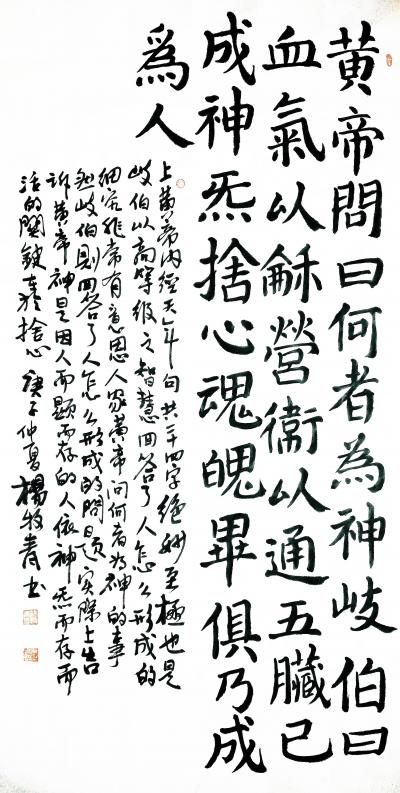 黄帝問曰何者為神歧伯曰
血氣以龢營衛以通五臟已
成神炁捨心魂魄畢俱乃成
爲人
上黄帝内經天年句共三十四字絕妙至極也是
歧伯以高等级之智慧回答了人怎么形成的
细究非常有意思人家黄帝问何者为神的事
然歧伯则回答了人怎么形成的问题实际上告
诉黄帝神是因人而顯而存的人依神炁而存而
活的關鍵在於捨心 庚子仲夏楊牧青书